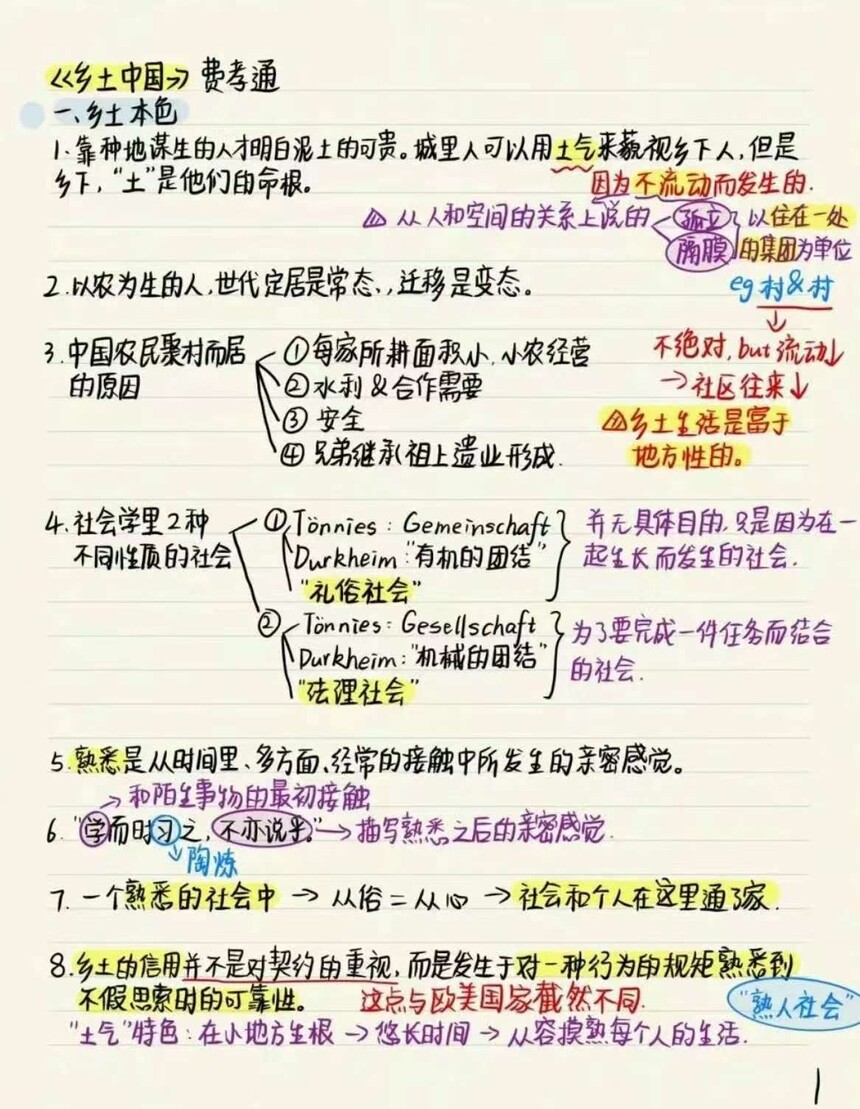 《乡土中国》费孝通
一、乡土本色
1.靠种地谋生的人才明白泥土的可贵。城里人可以用土气来藐视乡下人,但是
乡下,“土”是他们的命根。
因为不流动而发生的.
从人和空间的关系上说的
孤立
隔膜
以住在一处
的集团为单位
2.以农为生的人,世代定居是常态,,迁移是变态。
eg 村&村
不绝对,but 流动↓
→社区往来↓
3.中国农民聚村而居
的原因
①每家所耕面积小,小农经营
②水利&合作需要
③安全
④兄弟继承祖上遗业形成.
乡土生活是富于
地方性的。
4.社会学里2种
不同性质的社会
①Tönnies:Gemeinschaft
Durkheim:“有机的团结”
“礼俗社会”
并无具体目的,只是因为在一
起生长而发生的社会.
②Tönnies:Gesellschaft
Durkheim:“机械的团结”
“法理社会”
为了要完成一件任务而结合
的社会.
5.熟悉是从时间里、多方面、经常的接触中所发生的亲密感觉。
→和陌生事物的最初接触
6.“学而时习之,不亦说乎。”→描写熟悉之后的亲密感觉.
陶炼
7.一个熟悉的社会中→从俗=从心→社会和个人在这里通了家.
8.乡土的信用并不是对契约的重视,而是发生于对一种行为的规矩熟悉到
不假思索时的可靠性。 这点与欧美国家截然不同.
“熟人社会”
“土气”特色:在小地方生根→悠长时间→从容摸熟每个人的生活.
1